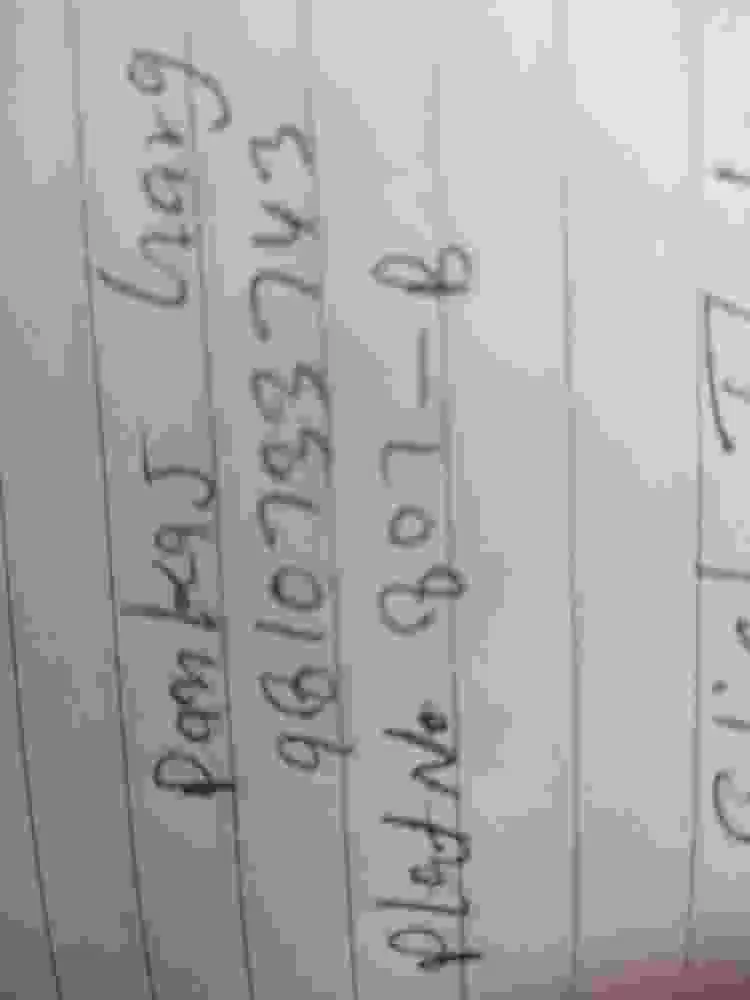 Pankaj Garg
9810783743
Plat No 807 - B